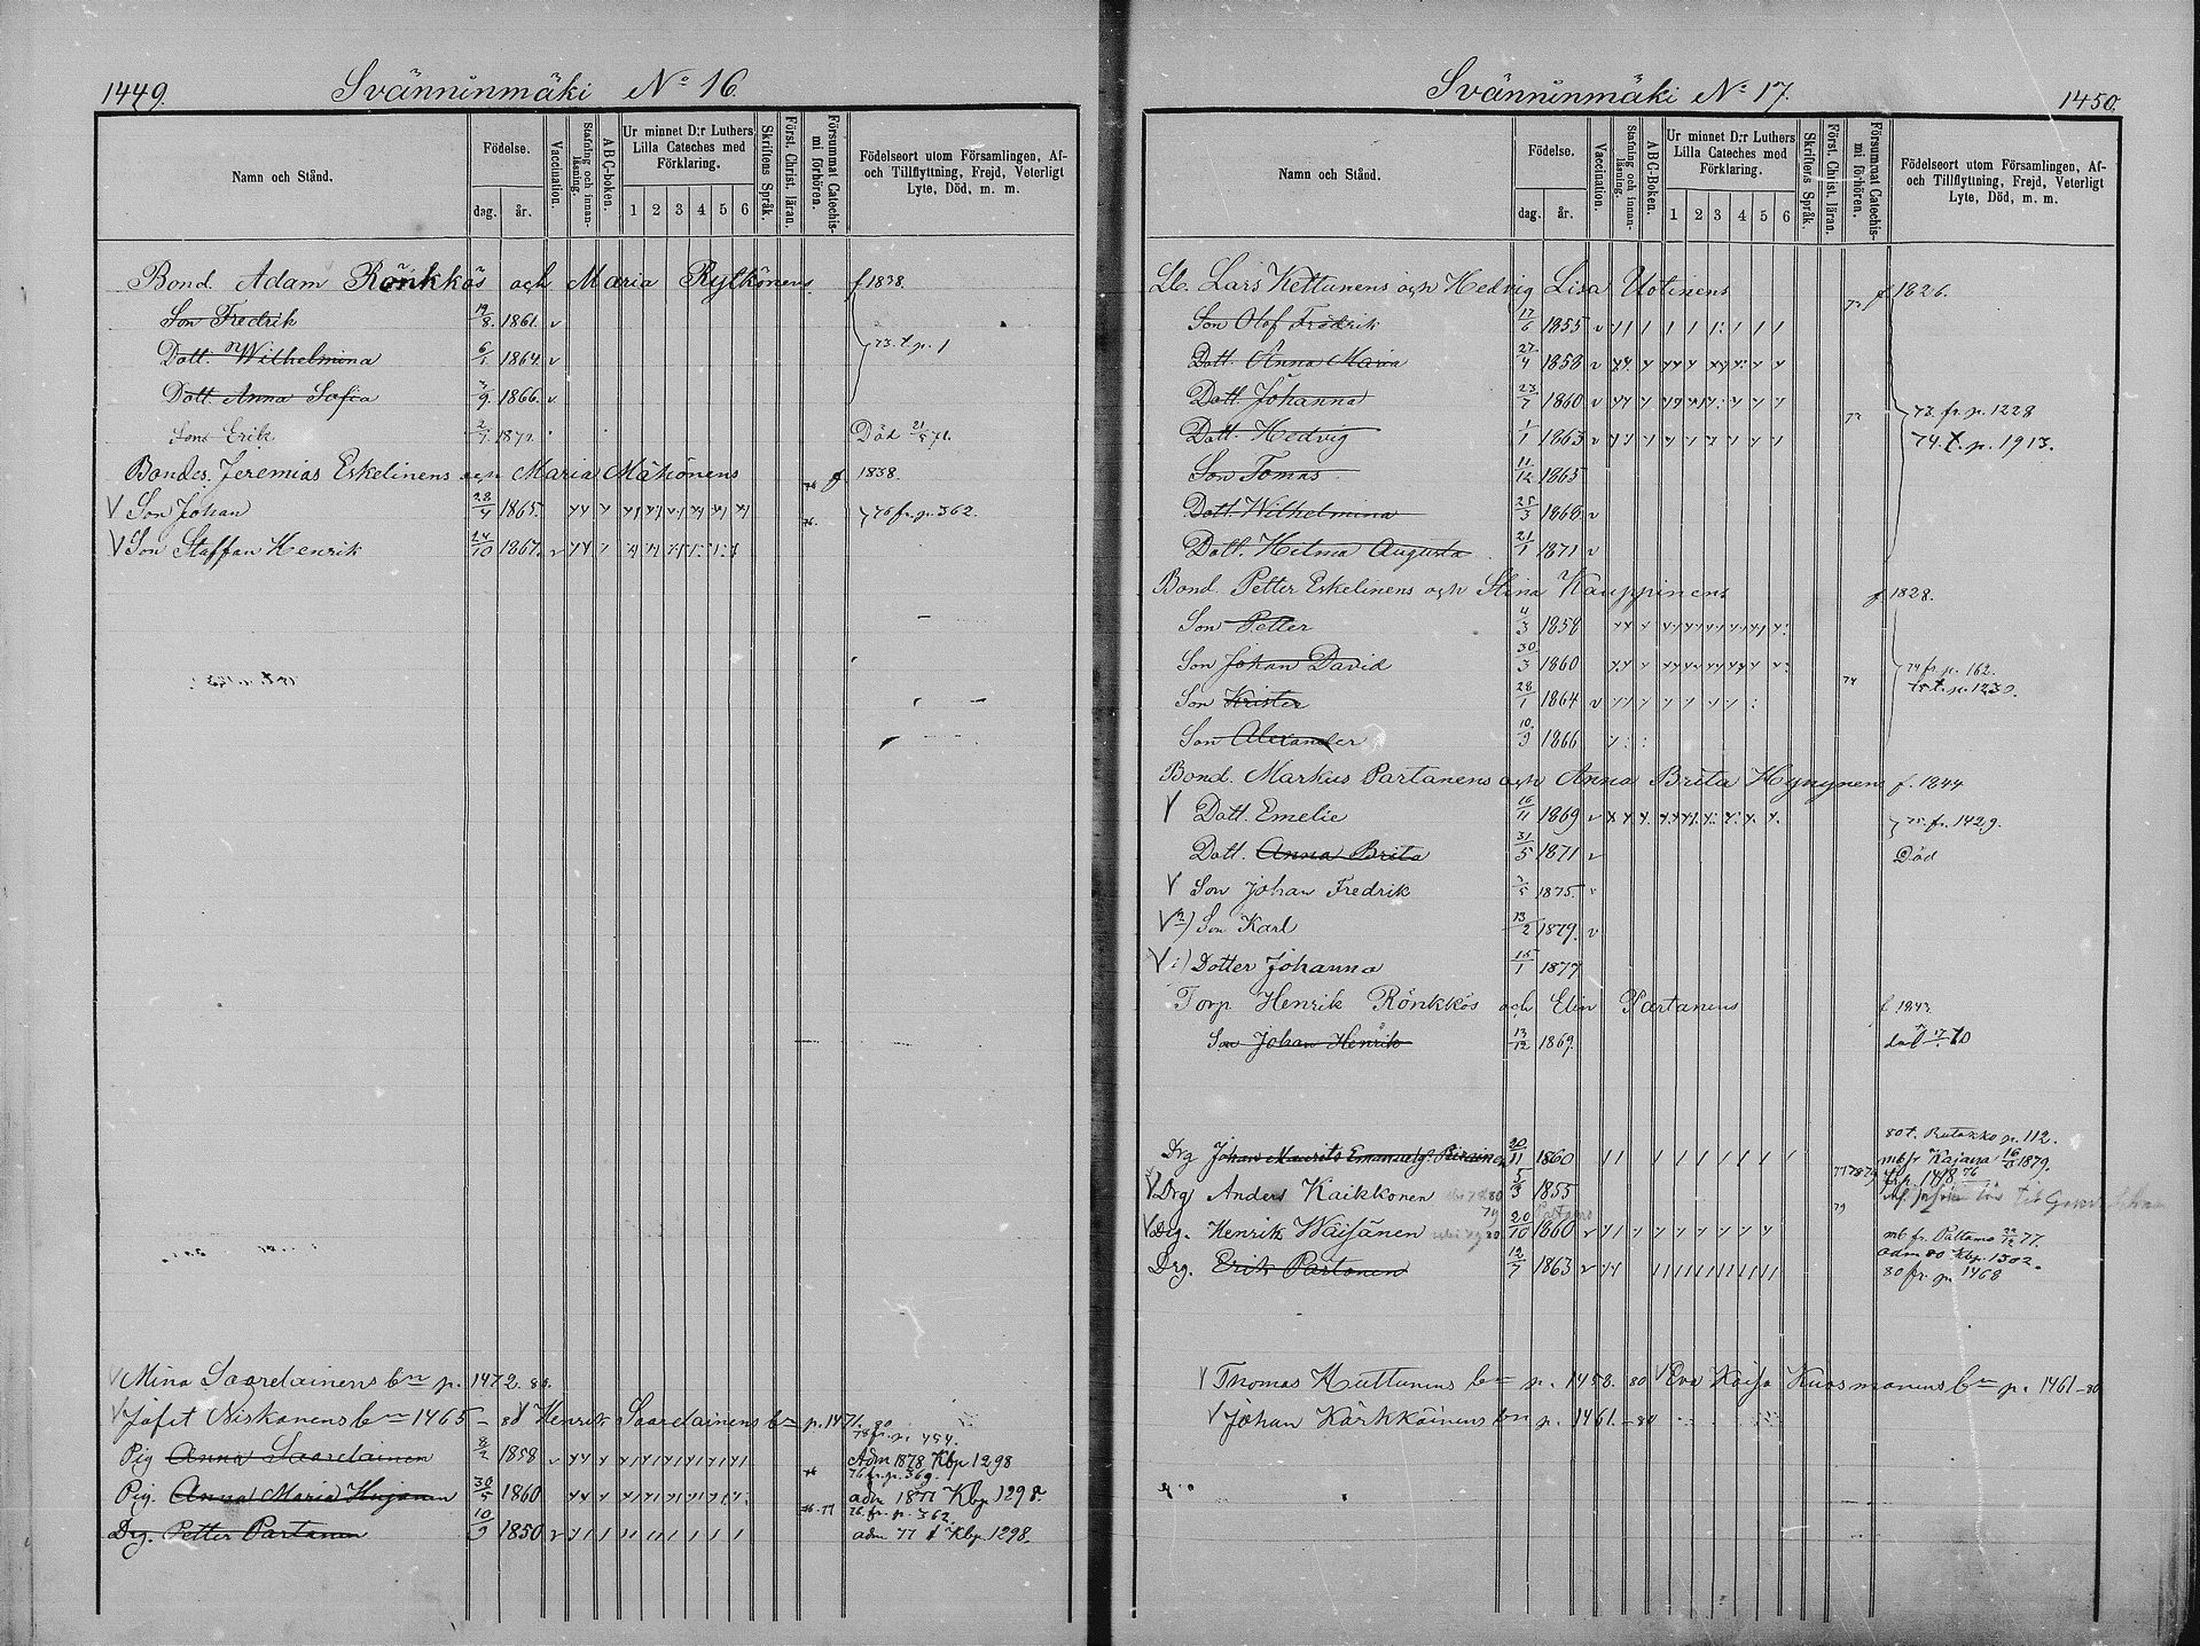 1449.
Svänninmäki No 16.
Namn och Stånd.
Födelse.
dag. år.
Vaccination.
Stafning och innan-läsning.
ABC-boken.
Ur minnet D:r Luthers Lilla Cateches med Förklaring.
1 2 3 4 5 6
Skriftens Språk.
Först. Christ. läran.
Försummat Catechis-mi förhören.
Födelseort utom Församlingen, Af- och Tillflyttning, Frejd, Veterligt Lyte, Död, m. m.
Bond. Adam Rönkkös och Maria Rytkönens f 1838.
Son Fredrik 19/8 1861. v
Dott. Wilhelmina 6/1 1864. v 73. t. p. 1
Dott. Anna Sofia 9 1866. v
Son Erik 1871. Död 21/5 71.
Bondes. Jeremias Eskelinens och Maria Mähönens 76 f 1838.
V Son Johan 28/4 1865. 76. 76 fr. p. 362.
V Son Staffan Henrik 24/10 1867. v
V Mina Saarelainens bn p. 1472. 80.
V Jafet Niskanens bn 1465 - 80 V Henrik Saarelainens bn p. 1471. 80
78 fr. p. 454.
Pig Anna Saarelainen 8/2 1858 v Adm 1878 Kbp 1298
76 fr. p. 369.
Pig. Anna Maria Hujanen 30/5 1860 76 adm 1877 Kbp 1298.
76. fr. p. 362.
Drg. Petter Partanen 10/9 1850 v 76-77 adm 77 Kbp. 1298.
Svänninmäki No 17.
1450.
Namn och Stånd.
Födelse.
dag. år.
Vaccination.
Stafning och innan-läsning.
ABC-Boken.
Ur minnet D:r Luthers Lilla Cateches med Förklaring.
1 2 3 4 5 6
Skriftens Språk.
Först. Christ. läran.
Försummat Catechis-mi förhören.
Födelseort utom Församlingen, Af- och Tillflyttning, Frejd, Veterligt Lyte, Död, m. m.
Lb. Lars Kettunens och Hedvig Lisa Uotinens f 1826.
Son Olof Fredrik 17/6 1855 v
Dott. Anna Maria 27/4 1858 v
Dott. Johanna 23/7 1860 v 73. fr. p. 1228
Dott. Hedvig 1/1 1863 v 74. t. p. 1913.
Son Tomas 11/12 1865
Dott. Wilhelmina 25/3 1868 v
Dott. Hilma Augusta 21/1 1871 v
Bond. Petter Eskelinens och Stina Kauppinens f 1828.
Son Petter 4/3 1858
Son Johan David 30/3 1860 74 fr. p. 162.
Son Krister 28/1 1864 v 74 t. p. 1230.
Son Alexander 10/9 1866
Bond. Markus Partanens och Anna Brita Hynynens f. 1844
V Dott. Emelie 16/11 1869 v 75. fr. 1429.
Dott. Anna Brita 31/5 1871 v Död
V Son Johan Fredrik 1875.
V 2) Son Karl 13/2 1879. v
V 1) Dotter Johanna 15/1 1877
Torp Henrik Rönkkös och Elin Partanens f. 1843
Son Johan Henrik 13/12 1869.
80 t. p. 112.
Drg Johan Maurits 20/11 1860 mb fr Kajana 1879.
V Drg Anders Kaikkonen 5/3 1855 77 78 79 fr p. 1418
V Drg. Henrik Wäisänen 20/10 1860 v mb fr. Paltamo 22/12 77.
adm 80 Kbp. 1302.
Drg. Erik Partanen 12/7 1863 v 80 fr. p. 1468
V Thomas Huttunens bn p. 1458. 80 V Eva Kaisa Kuosmanens bn p. 1461-80
V Johan Kärkkäinens bn p. 1461.-80